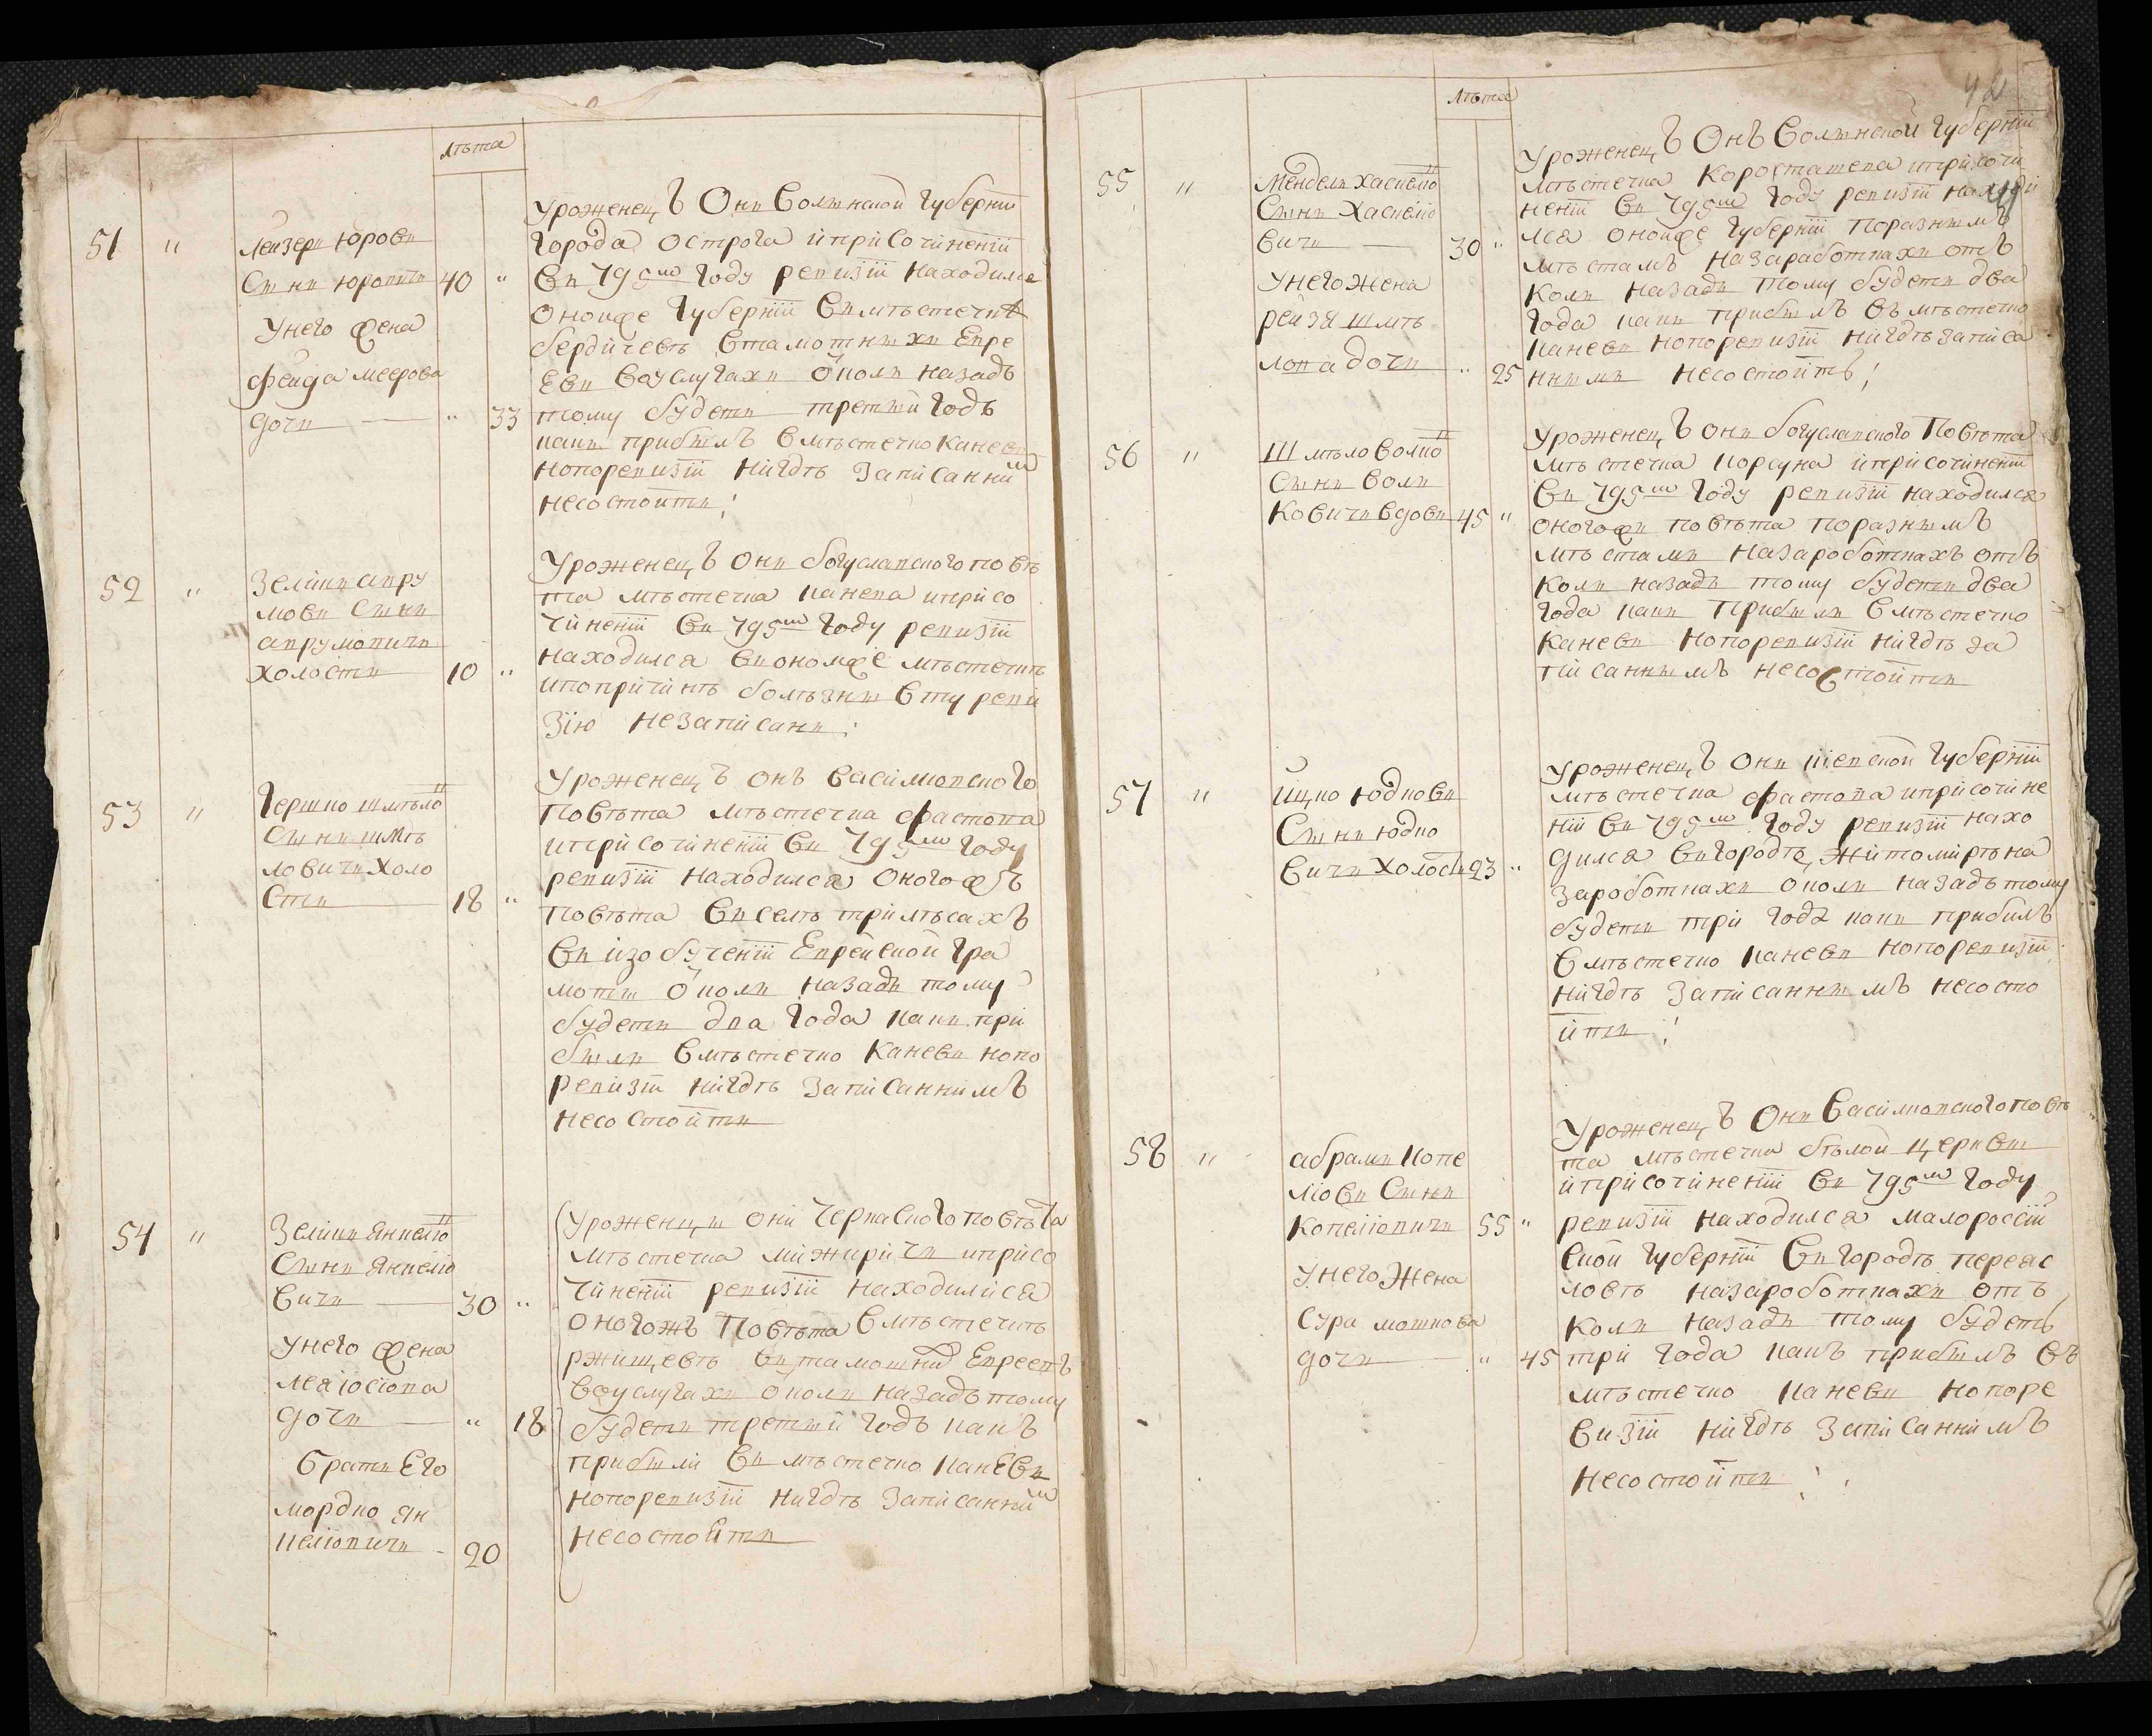 лѣта
51 "
Лейзеръ Юровъ
Сынъ Юровичъ 40 "
У него жена
Фейга меерова
дочъ — " 33
Уроженецъ Онъ Волынской губерніи
города острога и при Сочиненіи
Въ 795м году ревизіи находился
оной же губерніи Въ мѣстечкѣ
бердичевѣ в тамошныхъ Евре
Евъ Воуслугахъ ŏколъ назадъ
тому будетъ третый годъ
какъ прибылъ В мѣстечко Каневъ
но по ревизіи нигдѣ записанним
несостоитъ;
52 "
Зеликъ авру
мовъ Сынъ
аврумовичъ
холостъ 10 "
Уроженецъ Онъ богуславского повѣ
та мѣстечка канева и при со
чиненіи Въ 795м году ревизіи
находился Въ ономже мѣстечкѣ
и по причинѣ болѣзны в ту реви
зію не записанъ:
53 "
Гершко шмѣліо
Сынъ шмѣ
ловичъ холо
стъ — 18 "
Уроженецъ онъ Василковского
повѣта мѣстечка фастова
и при сочиненіи Въ 795м году
ревизіи находился оногожъ
повѣта Въ селѣ трилѣсахъ
Въ изобученіи Еврейской гра
моты ŏколъ назадъ тому
будетъ два года какъ при
былъ В мѣстечко Каневъ но по
ревизіи нигдѣ записаннимъ
несостоитъ
54 "
Зеликъ Янкеліо
Сынъ Янкеліо
Вичъ — 30 "
У него жена
лея іосіова
дочъ — " 18
братъ Его
мордко ян
келіовичъ - 20
Уроженцы они Черкаского повѣта
мѣстечка міжирічъ и при со
чиненіи ревизіи находилися
оногожъ Повѣта В мѣстечкѣ
ржищевѣ Въ тамошни Евреевъ
Воуслугахъ ŏколъ назадъ тому
будетъ третый годъ какъ
прибыли Въ мѣстечко канЕвъ
но по ревизіи нигдѣ записанним
несостоЕтъ
42
лѣта
55 "
Мендель хаскеліо
Сынъ Хаскеліо
вичъ — 30 "
У него жена
рейзя шмѣ
лова дочъ " 25
Уроженецъ Онъ Волынской губерніи
мѣстечка Коростышева и при сочи
неніи Въ 795м году ревизіи находи
лся оной же губерніи поразнымъ
мѣстамъ на заработкахъ отъ
Колъ назадъ тому будетъ два
года какъ прибылъ въ мѣстечко
Каневъ но по ревизіи нигдѣ записа
ннымъ несостоитъ;
56 "
Шмѣло Волко
Сынъ Волъ
Ковичъ Вдовъ 45 "
Уроженецъ Онъ богуславского Повѣта
мѣстечка корсуна и при сочиненіи
Въ 795м году ревизіи находился
оногожъ повѣта поразнымъ
мѣстамъ назароботкахъ отъ
Колъ назадъ тому будетъ два
года какъ Прибылъ В мѣстечко
Каневъ но по ревизіи нигдѣ за
писаннымъ несостоитъ
57 "
Ицко юдковъ
Сынъ юдко
Вичъ холостъ 23 "
Уроженецъ Онъ кіевской губерніи
мѣстечка фастова и при сочине
ніи Въ 795м году ревизіи нахо
дился Въ городѣ Житомирѣ на
зароботкахъ околъ назадъ тому
будетъ три года какъ прибилъ
В мѣстечко Каневъ но по ревизіи
нигдѣ записаннымъ несосто
итъ;
58 "
абрамъ копе
ліовъ Сынъ
копеліовичъ 55 "
У него Жена
Сура мошкова
дочъ — " 45
Уроженецъ Онъ Василковского повѣ
та мѣстечка бѣлой Церквы
и при сочиненіи Въ 795м году
ревизіи находился малоросій
ской губерніи Въ городѣ переяс
ловѣ назароботкахъ отъ
колъ назадъ тому будетъ
три года какъ прибылъ въ
мѣстечко Каневъ но поре
визіи нигдѣ записаннимъ
несостоитъ;